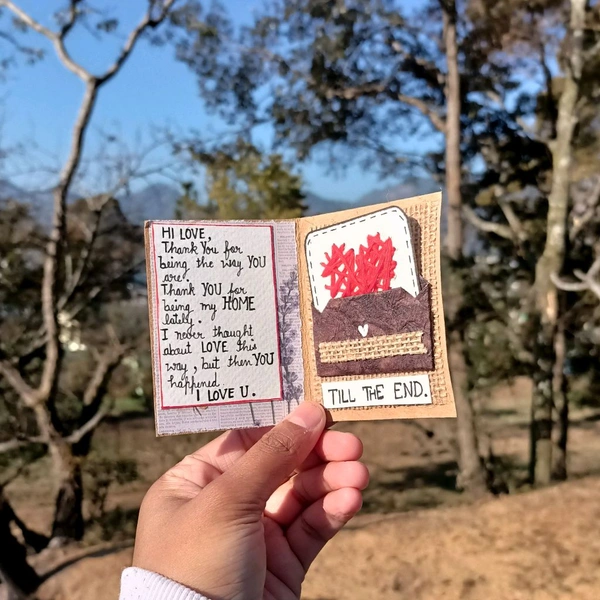 HI LOVE,
Thank You for
being the way YOU
are.
Thank YOU for
being my HOME
lately.
I never thought
about LOVE this
way, but then YOU
happened.
I LOVE U.
TILL THE END.